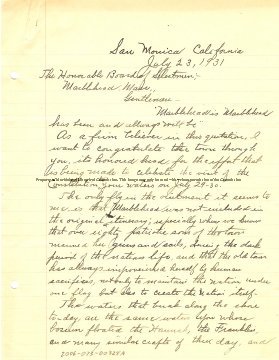 San Monica California
July 23, 1931
The Honorable Board of Selectmen,
Marblehead Mass.
Gentlemen
"Marblehead is Marblehead
has been and always will be"
As a firm believer in this quotation, I
want to congratulate the town through
you, its honored head for the effort that
is being made to celebrate the visit of the
Constitution your waters on July 29-30.
The only fly in the ointment it seems to
me is that Marblehead was not included in
the original itinerary, especially when we know
that one eighty patriotic sons of the town
manned her guns and sails, during the dark
period of the nations life, and that the old town
has always impoverished herself by human
sacrifices, not only to maintain the Nation under
one flag but also to create the Nation itself.
The waters that break along the shore
to-day, are the same waters upon whose
bosom floated the Hannah, the Franklin,
and many similar crafts of their day, and